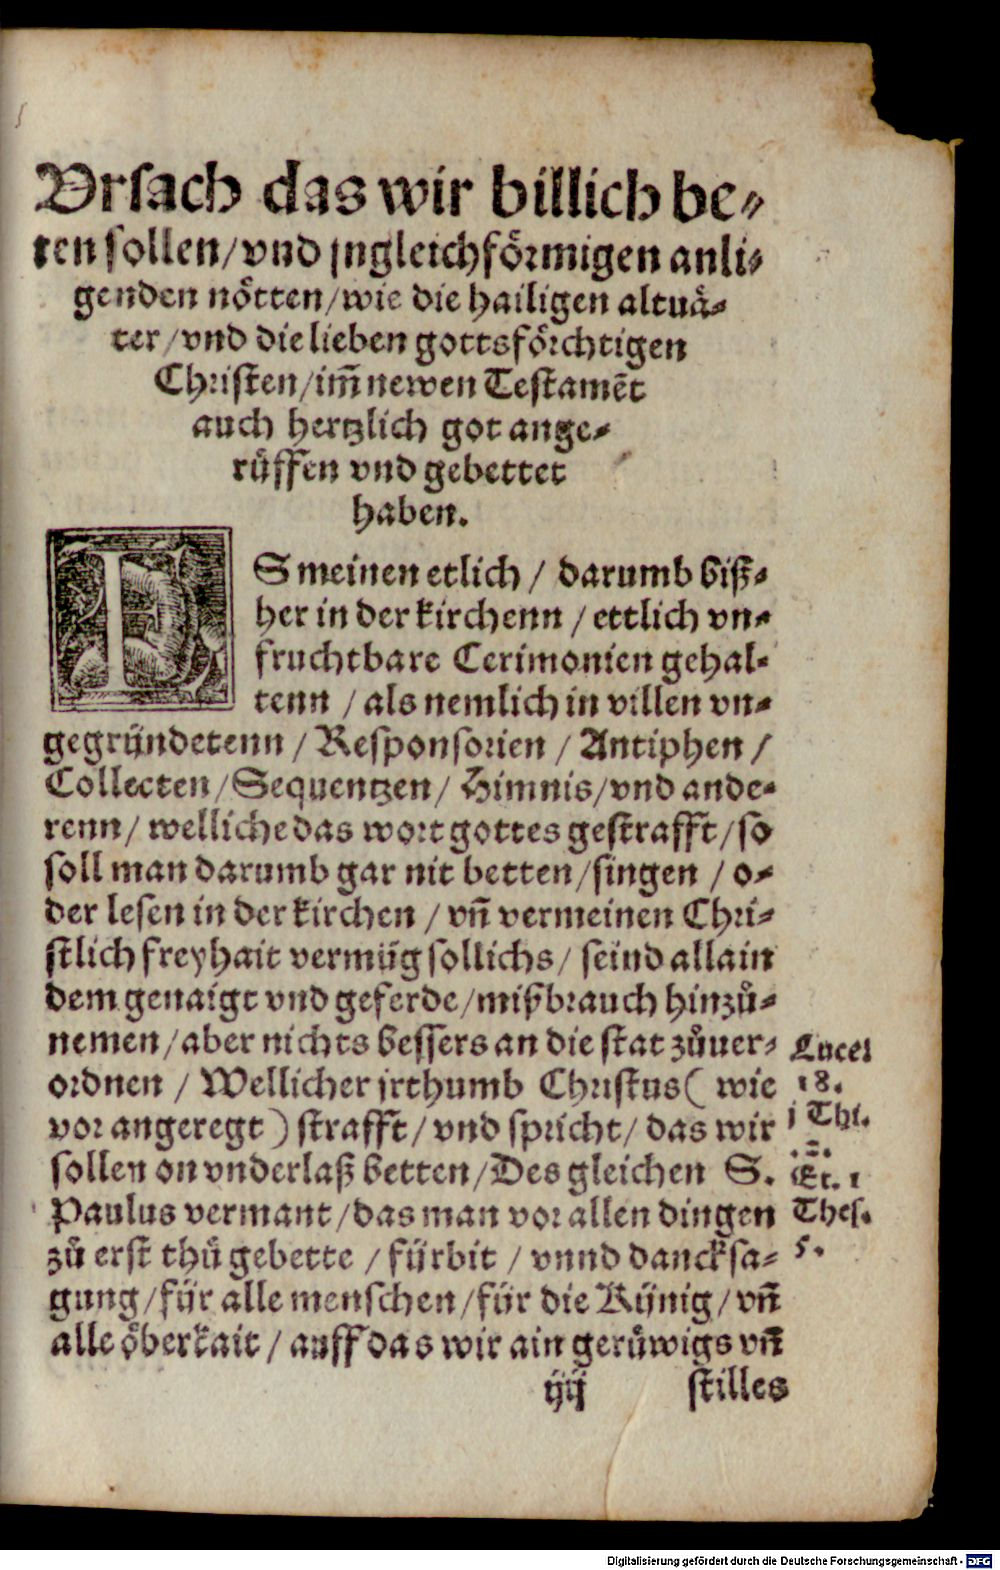 Vrsach das wir billich be⸗
ten sollen/ vnd jngleichförmigen anli⸗
genden nötten/ wie die hailigen altuä⸗
ter/ vnd die lieben gottsförchtigen
Christen/ im̄ newen Testamēt
auch hertzlich got ange⸗
rüffen vnd gebettet
haben.
ES meinen etlich / darumb biß⸗
her in der kirchenn / ettlich vn⸗
fruchtbare Cerimonien gehal⸗
tenn / als nemlich in villen vn⸗
gegründetenn / Responsorien / Antiphen /
Collecten / Sequentzen / Himnis / vnd ande⸗
renn / welliche das wort gottes gestrafft / so
soll man darumb gar nit betten / singen / o⸗
der lesen in der kirchen / vn̄ vermeinen Chri⸗
stlich freyhait vermüg sollichs / seind allain
dem genaigt vnd geferde / mißbrauch hinzů⸗
nemen / aber nichts bessers an die stat zůuer⸗
ordnen / Wellicher jrthumb Christus ( wie
vor angeregt ) strafft / vnd spricht / das wir
sollen on vnderlaß betten / Des gleichen S.
Paulus vermant / das man vor allen dingen
zů erst thů gebette / fürbit / vnnd dancksa⸗
gung / für alle menschen / für die Künig / vn̄
alle öberkait / auff das wir ain gerůwigs vn̄
iij stilles
Luce
18.
j Thi.
.2.
Et. 1
Thes.
5.
Digitalisierung gefördert durch die Deutsche Forschungsgemeinschaft - DFG